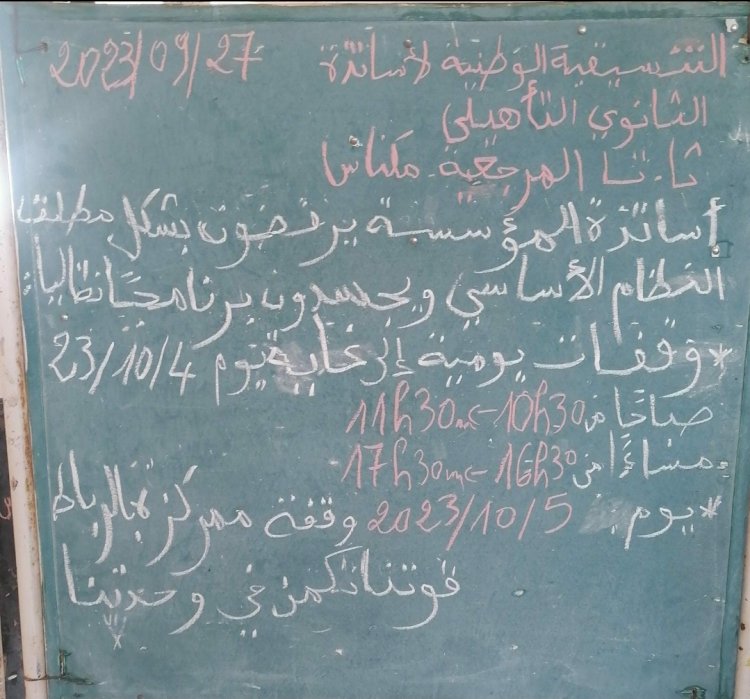 التنسيقية الوطنية لأساتذة 2023/09/27
الثانوي التأهيلي
ثا. تا المرجعية. مكناس
أساتذة المؤسسة يرفضون بشكل مطلق
النظام الأساسي ويجسدون برنامجًا نضاليا:
*وقفات يومية إلى غاية يوم 23/10/4
صباحًا من 10h30 <- 11h30m
مساءًا من 16h30 <- 17h30m
*يوم: 2023/10/5 وقفة ممركزة بالرباط
قوتنا تكمن في وحدتنا